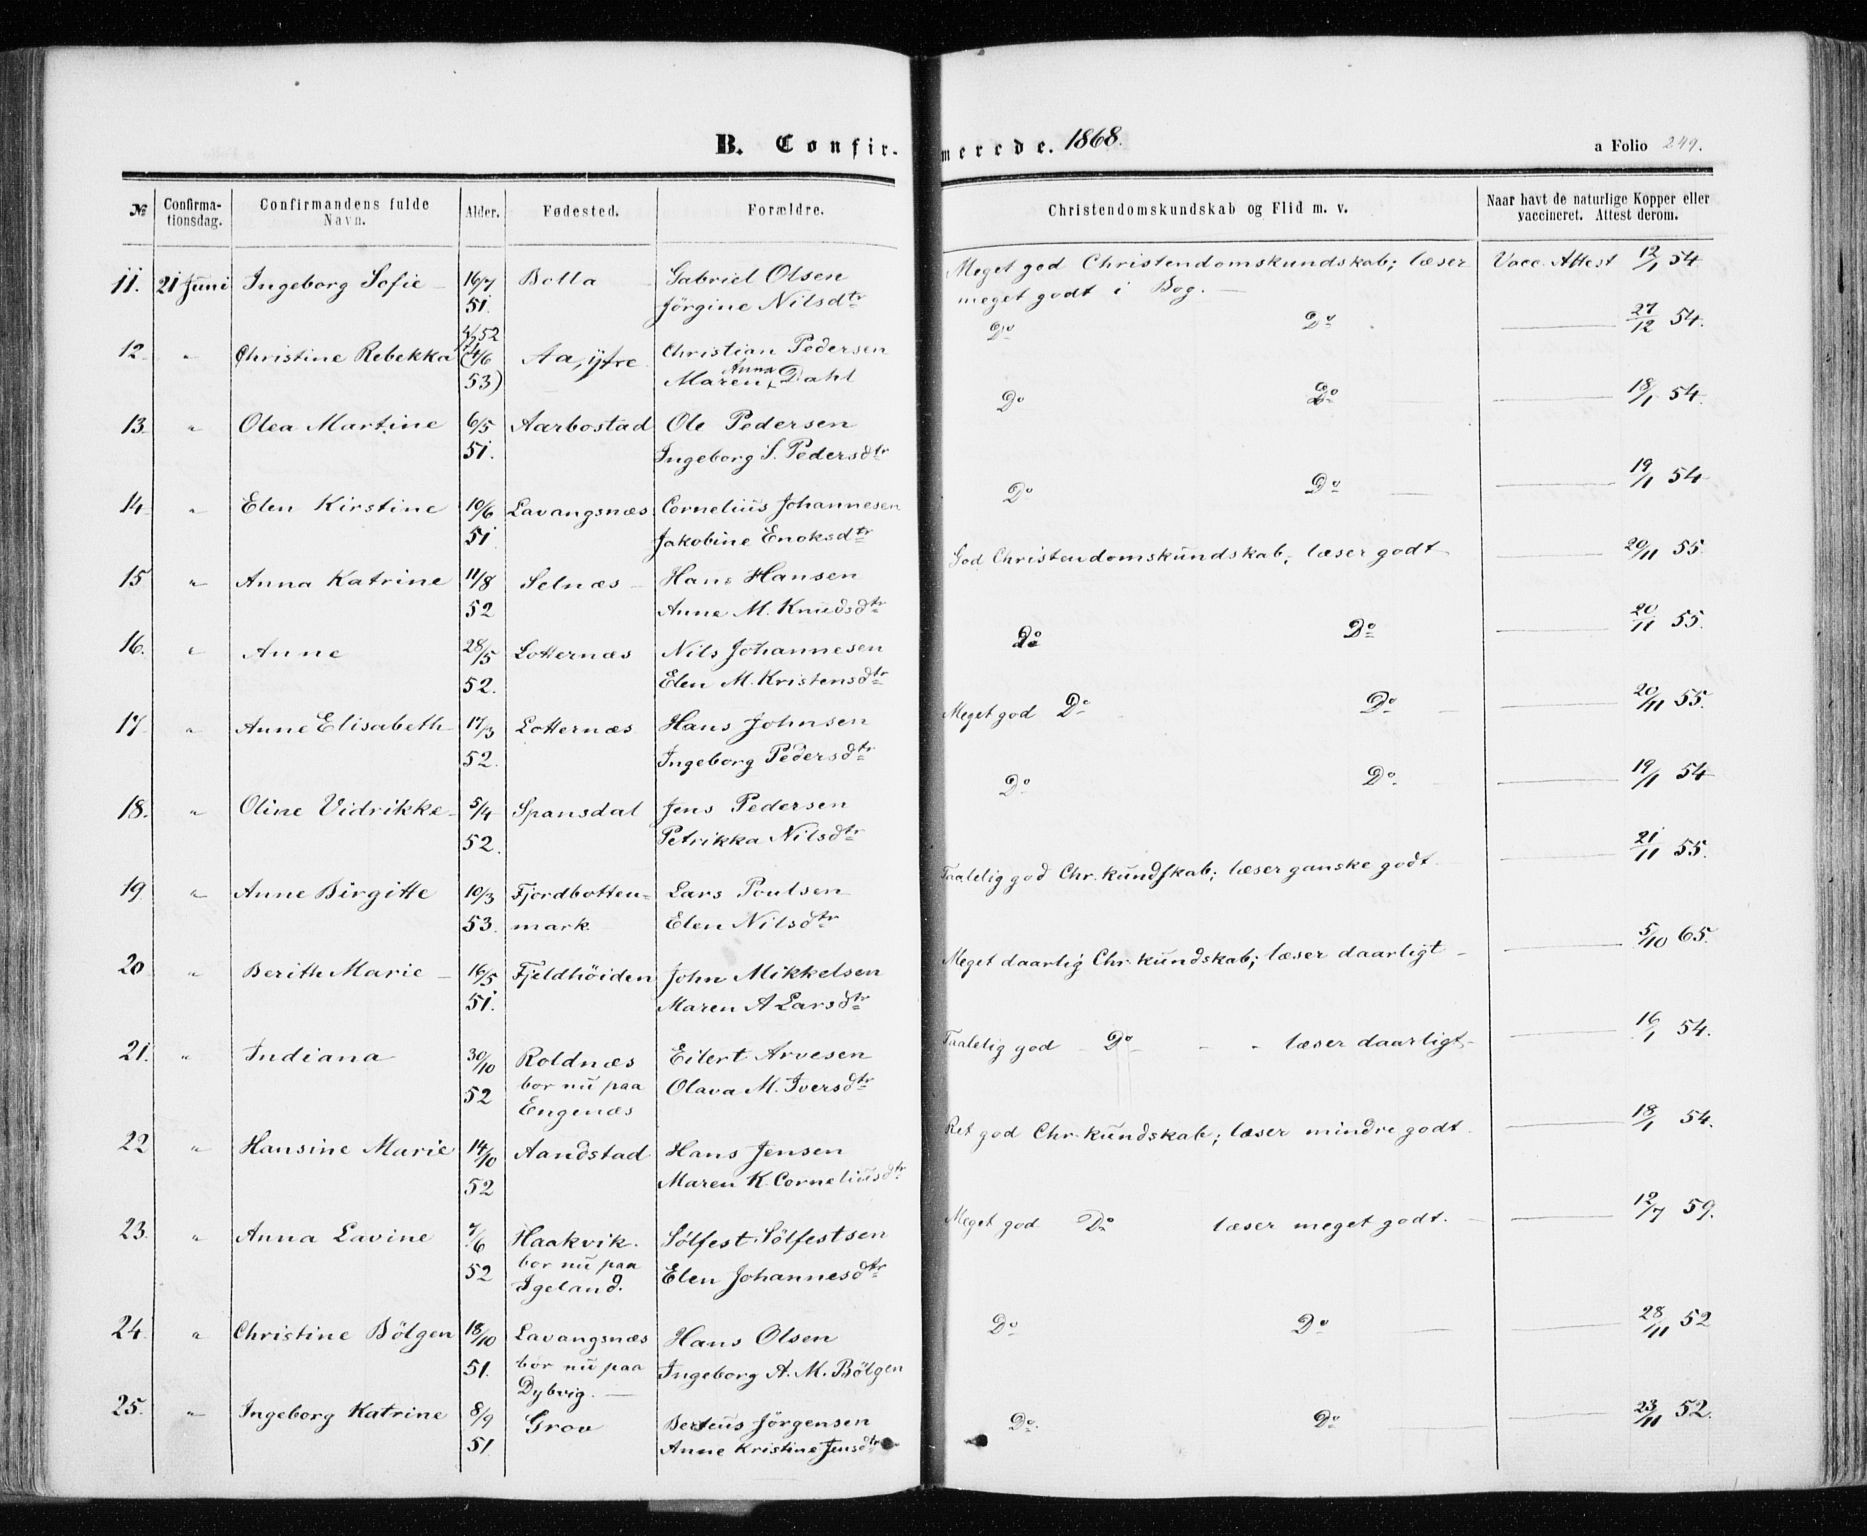 B. Confir- merede. 1868. a Folio 249.
№ Confirmationsdag. Confirmandens fulde Navn. Alder. Fødested. Forældre. Christendomskundskab og Flid m. v. Naar havt de naturlige Kopper eller vaccineret. Attest derom.
11. 21 Juni Ingeborg Sofie 16/7 Bolla Gabriel Olsen Meget god Christendomskundskab; læser Vacc. Attest 12/1 54.
51. Jörgine Nilsdtr meget godt i Bog.
12. " Christine Rebekka 52 (4/6 53) Aa, ytre Christian Pedersen Do Do 27/12 54.
Maren Anna Dahl
13. " Olea Martine 6/5 Aarbostad Ole Pedersen Do Do 18/1 54.
51. Ingeborg S. Pedersdtr
14 " Elen Kirstine 10/6 Lavangsnæs Cornelius Johannesen Do Do 19/1 54
51 Jakobine Enoksdtr
15 " Anna Katrine 11/8 Selnæs Hans Hansen God Christendomskundskab, læser godt 20/11 55.
52 Anne M. Knudsdtr
16. " Anne 28/5 Lotternæs Nils Johannesen Do Do 20/11 55.
52. Elen M. Kristensdtr
17. " Anne Elisabeth 17/3 Lotternæs Hans Johnsen Meget god Do Do 20/11 55.
52. Ingeborg Pedersdtr
18. " Oline Vidrikke 5/4 Spansdal Jens Pedersen Do Do 19/1 54
52. Petrikka Nilsdtr
19. " Anne Birgitte 10/3 Fjordbotten- Lars Poulsen Taalelig god Chr. kundskab; læser ganske godt 21/11 55.
53. mark Elen Nilsdtr
20 " Berith Marie 16/5 Fjeldhöiden John Mikkelsen Meget daarlig Chr. kundskab; læser daarligt 5/10 65.
51. Maren A Larsdtr
21. " Indiana 30/10 Roldnæs Eilert Arvesen Taalelig god Do " læser daarligt 16/1 54.
52 bor nu paa Olava M. Iversdtr
Engenæs
22 " Hansine Marie 14/10 Aandstad Hans Jensen Ret god Chr. kundskab; læser mindre godt 18/1 54.
52 Maren K. Corneliusdtr
23. " Anna Lavine 7/6 Haakvik. Sölfest Sölfestsen Meget god Do læser meget godt. 12/7 59.
52 bor nu paa Elen Johannesdtr
Igeland.
24. " Christine Bölgen 18/10 Lavangsnæs Hans Olsen Do Do 28/11 52
51. bor nu paa Ingeborg A. M. Bölgen
Dybvig.
25. " Ingeborg Katrine 8/9 Grov Berteus Jörgensen Do. Do 23/11 52.
51 Anne Kristine Jensdtr